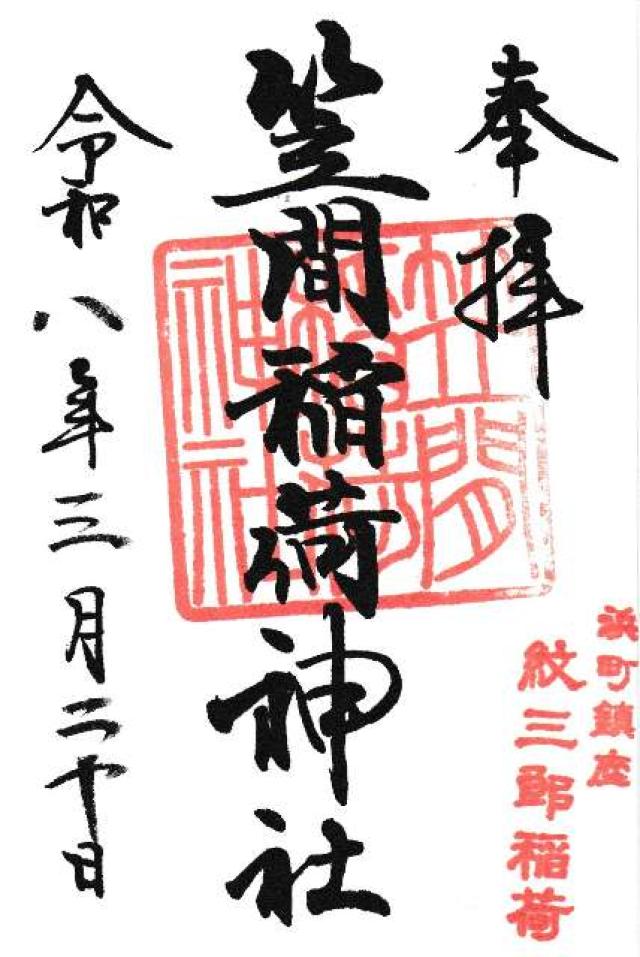 奉拝
笠間稲荷神社
笠間稲荷神社
令和八年三月二十日
浜町鎮座
紋三郎稲荷